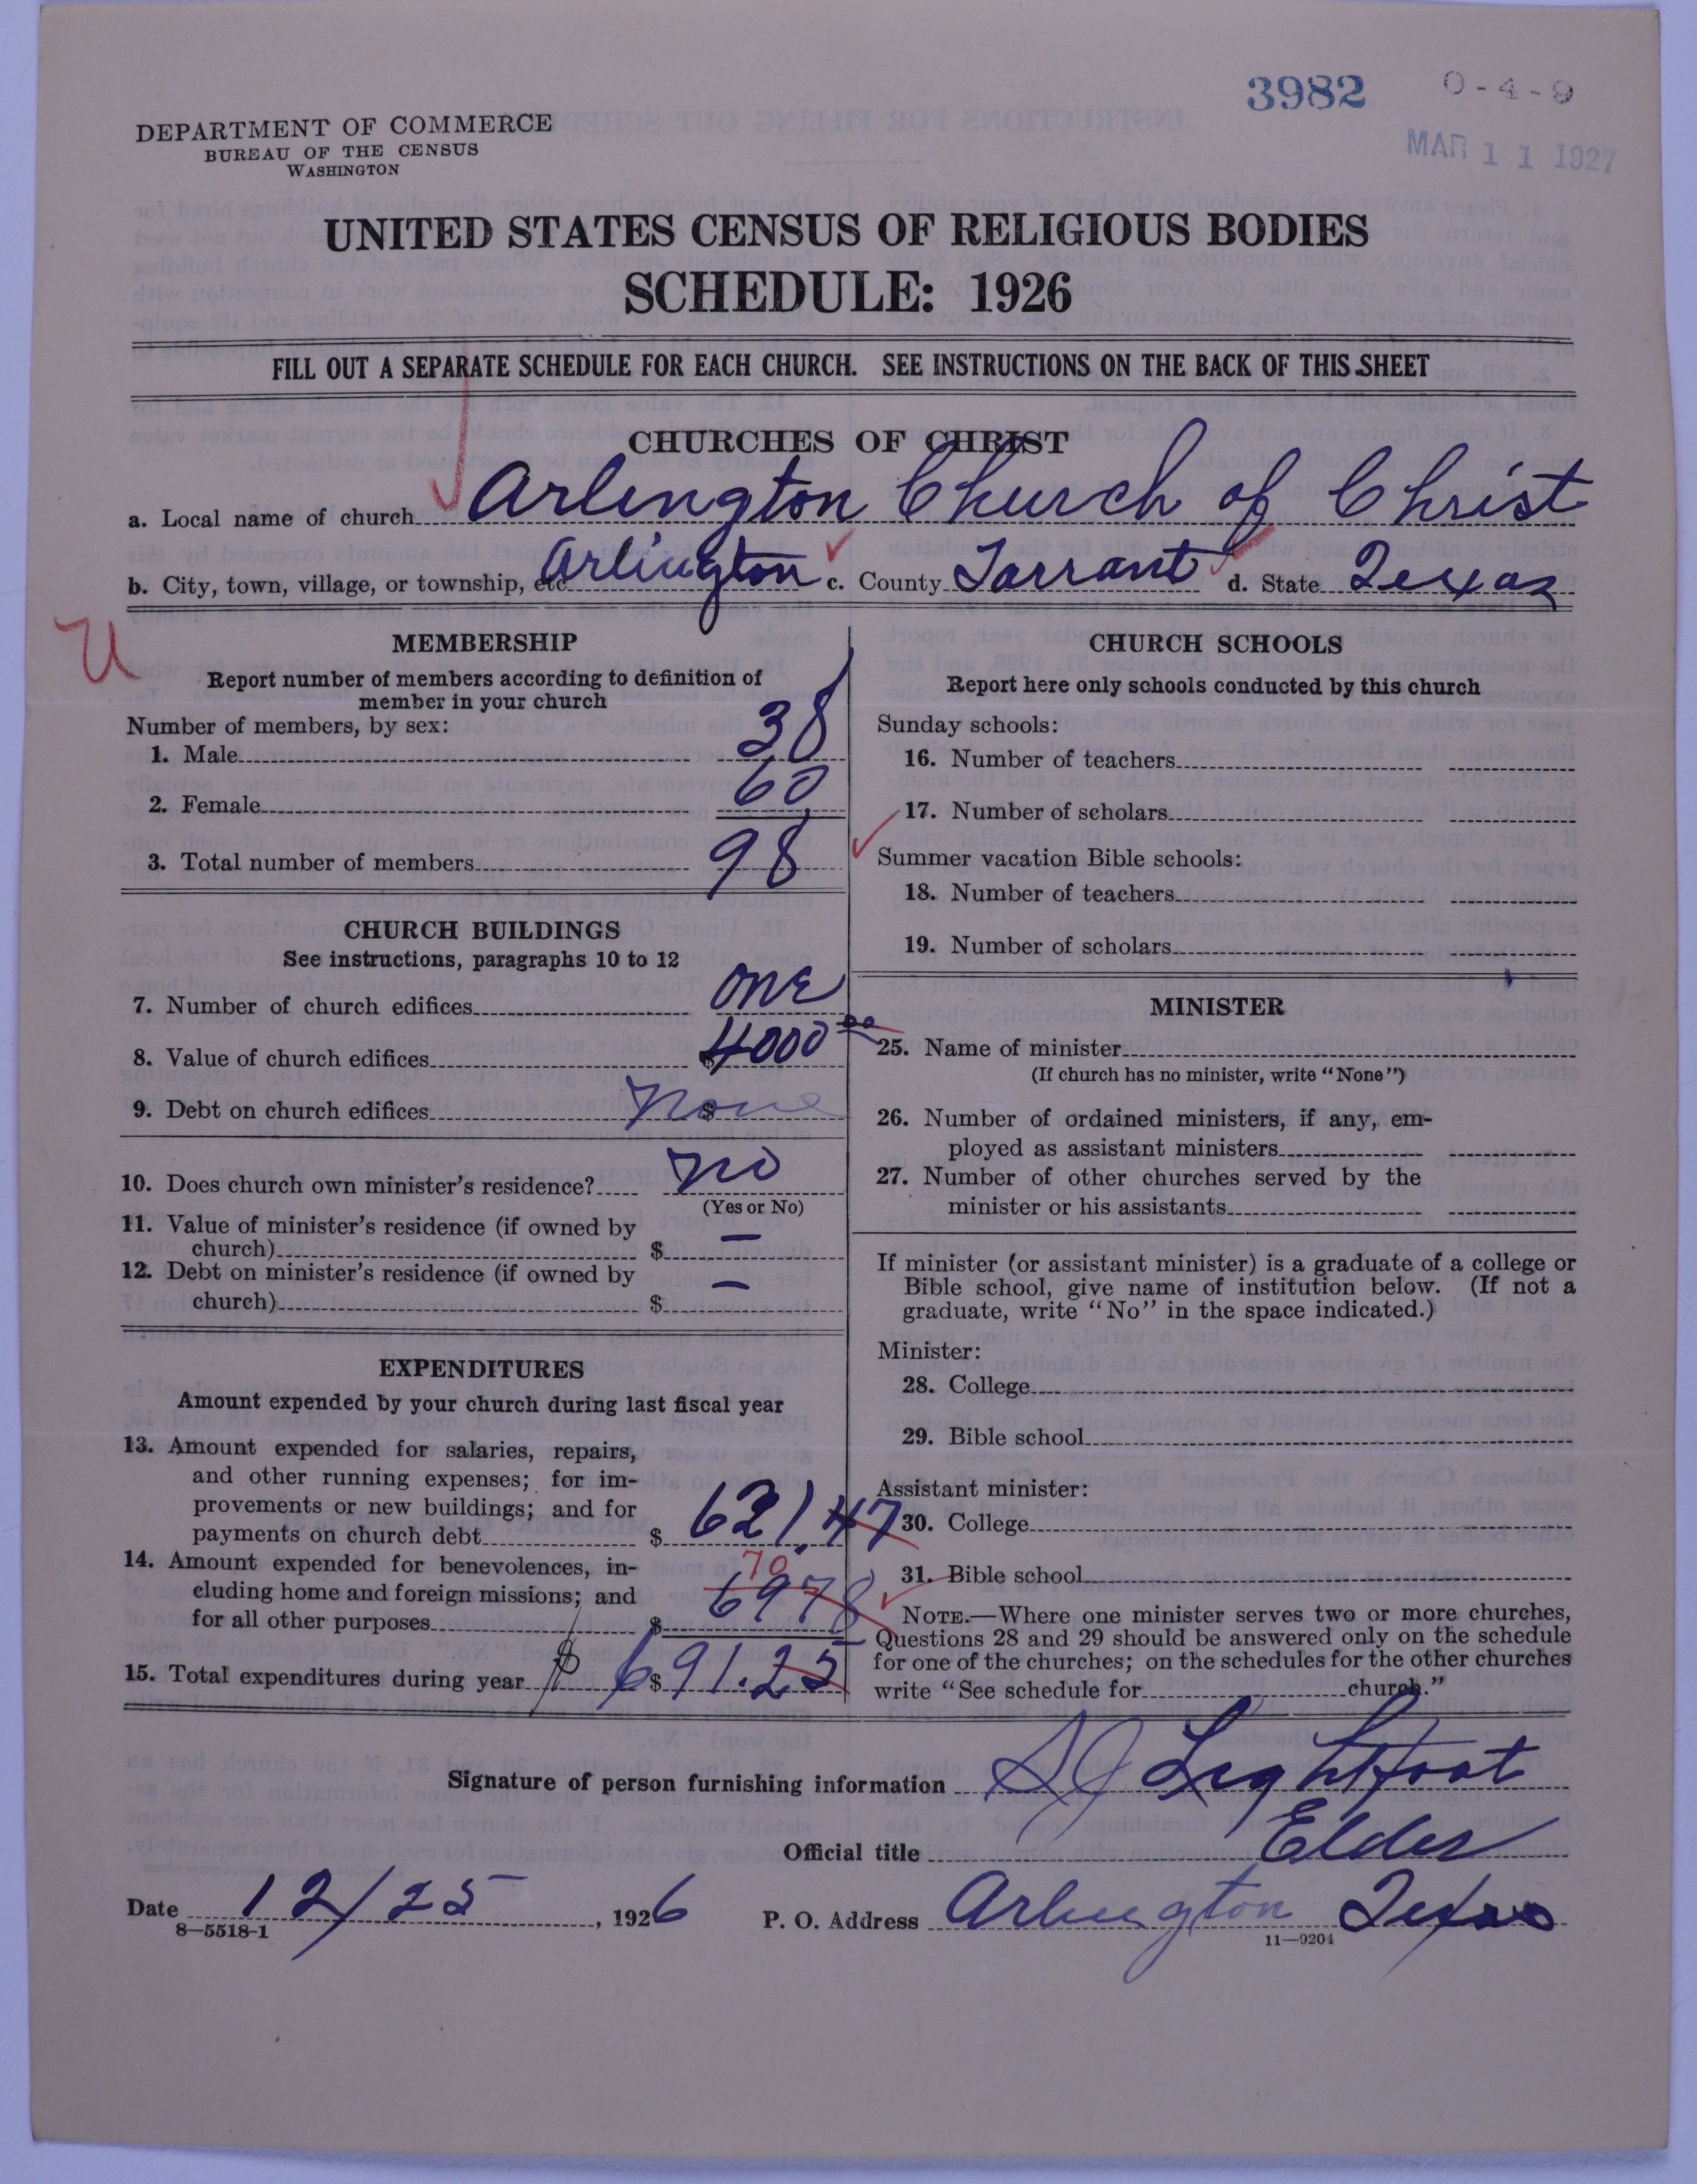 3982 0-4-9
MAR 11 1927
DEPARTMENT OF COMMERCE
BUREAU OF THE CENSUS
WASHINGTON
UNITED STATES CENSUS OF RELIGIOUS BODIES
SCHEDULE: 1926
FILL OUT A SEPARATE SCHEDULE FOR EACH CHURCH. SEE INSTRUCTIONS ON THE BACK OF THIS SHEET
CHURCHES OF CHRIST
a. Local name of church Arlington Church of Christ
b. City, town, village, or township, etc. Arlington c. County Tarrant d. State Texas
U
MEMBERSHIP
Report number of members according to definition of
member in your church
Number of members, by sex:
1. Male 38
2. Female 60
3. Total number of members 98
CHURCH BUILDINGS
See instructions, paragraphs 10 to 12
7. Number of church edifices one
8. Value of church edifices $4000 00
9. Debt on church edifices $ None
10. Does church own minister's residence? no
(Yes or No)
11. Value of minister's residence (if owned by
church) $ —
12. Debt on minister's residence (if owned by
church) $ —
EXPENDITURES
Amount expended by your church during last fiscal year
13. Amount expended for salaries, repairs,
and other running expenses; for im-
provements or new buildings; and for
payments on church debt $ 621.47
14. Amount expended for benevolences, in-
70
cluding home and foreign missions; and
for all other purposes $ 69 78
15. Total expenditures during year $ $ 691.25
CHURCH SCHOOLS
Report here only schools conducted by this church
Sunday schools:
16. Number of teachers
17. Number of scholars
Summer vacation Bible schools:
18. Number of teachers
19. Number of scholars
MINISTER
25. Name of minister
(If church has no minister, write "None")
26. Number of ordained ministers, if any, em-
ployed as assistant ministers
27. Number of other churches served by the
minister or his assistants
If minister (or assistant minister) is a graduate of a college or
Bible school, give name of institution below. (If not a
graduate, write "No" in the space indicated.)
Minister:
28. College
29. Bible school
Assistant minister:
30. College
31. Bible school
NOTE.—Where one minister serves two or more churches,
Questions 28 and 29 should be answered only on the schedule
for one of the churches; on the schedules for the other churches
write "See schedule for church."
Signature of person furnishing information SJ Lightfoot
Official title Elder
Date 12/25, 1926 P. O. Address Arlington Texas
8—5518-1 11—9204